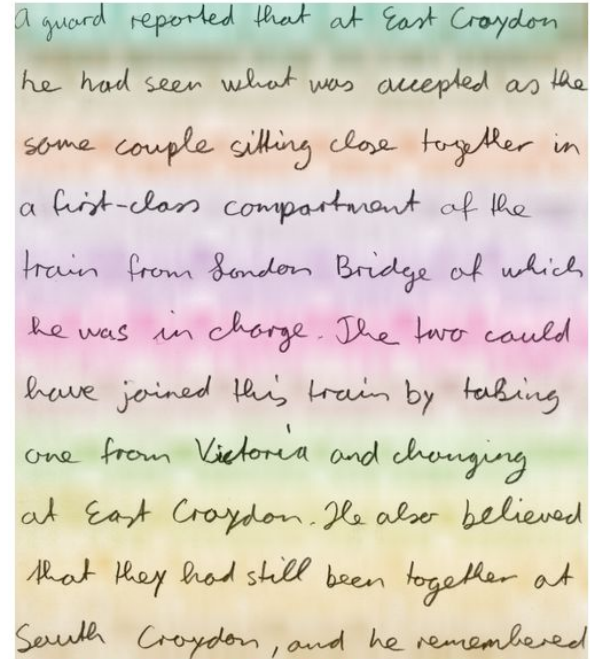 a guard reported that at East Croydon
he had seen what was accepted as the
same couple sitting close together in
a first-class compartment of the
train from London Bridge of which
he was in charge. The two could
have joined this train by taking
one from Victoria and changing
at East Croydon. He also believed
that they had still been together at
South Croydon, and he remembered